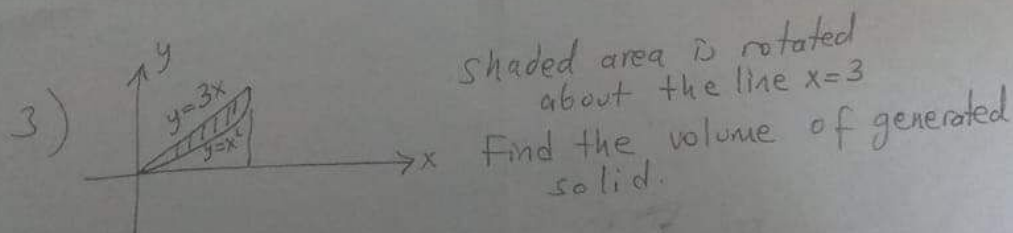 3)
y
y=3x
y=x²
x
Shaded area is rotated
about the line x=3
Find the volume of generated
solid.